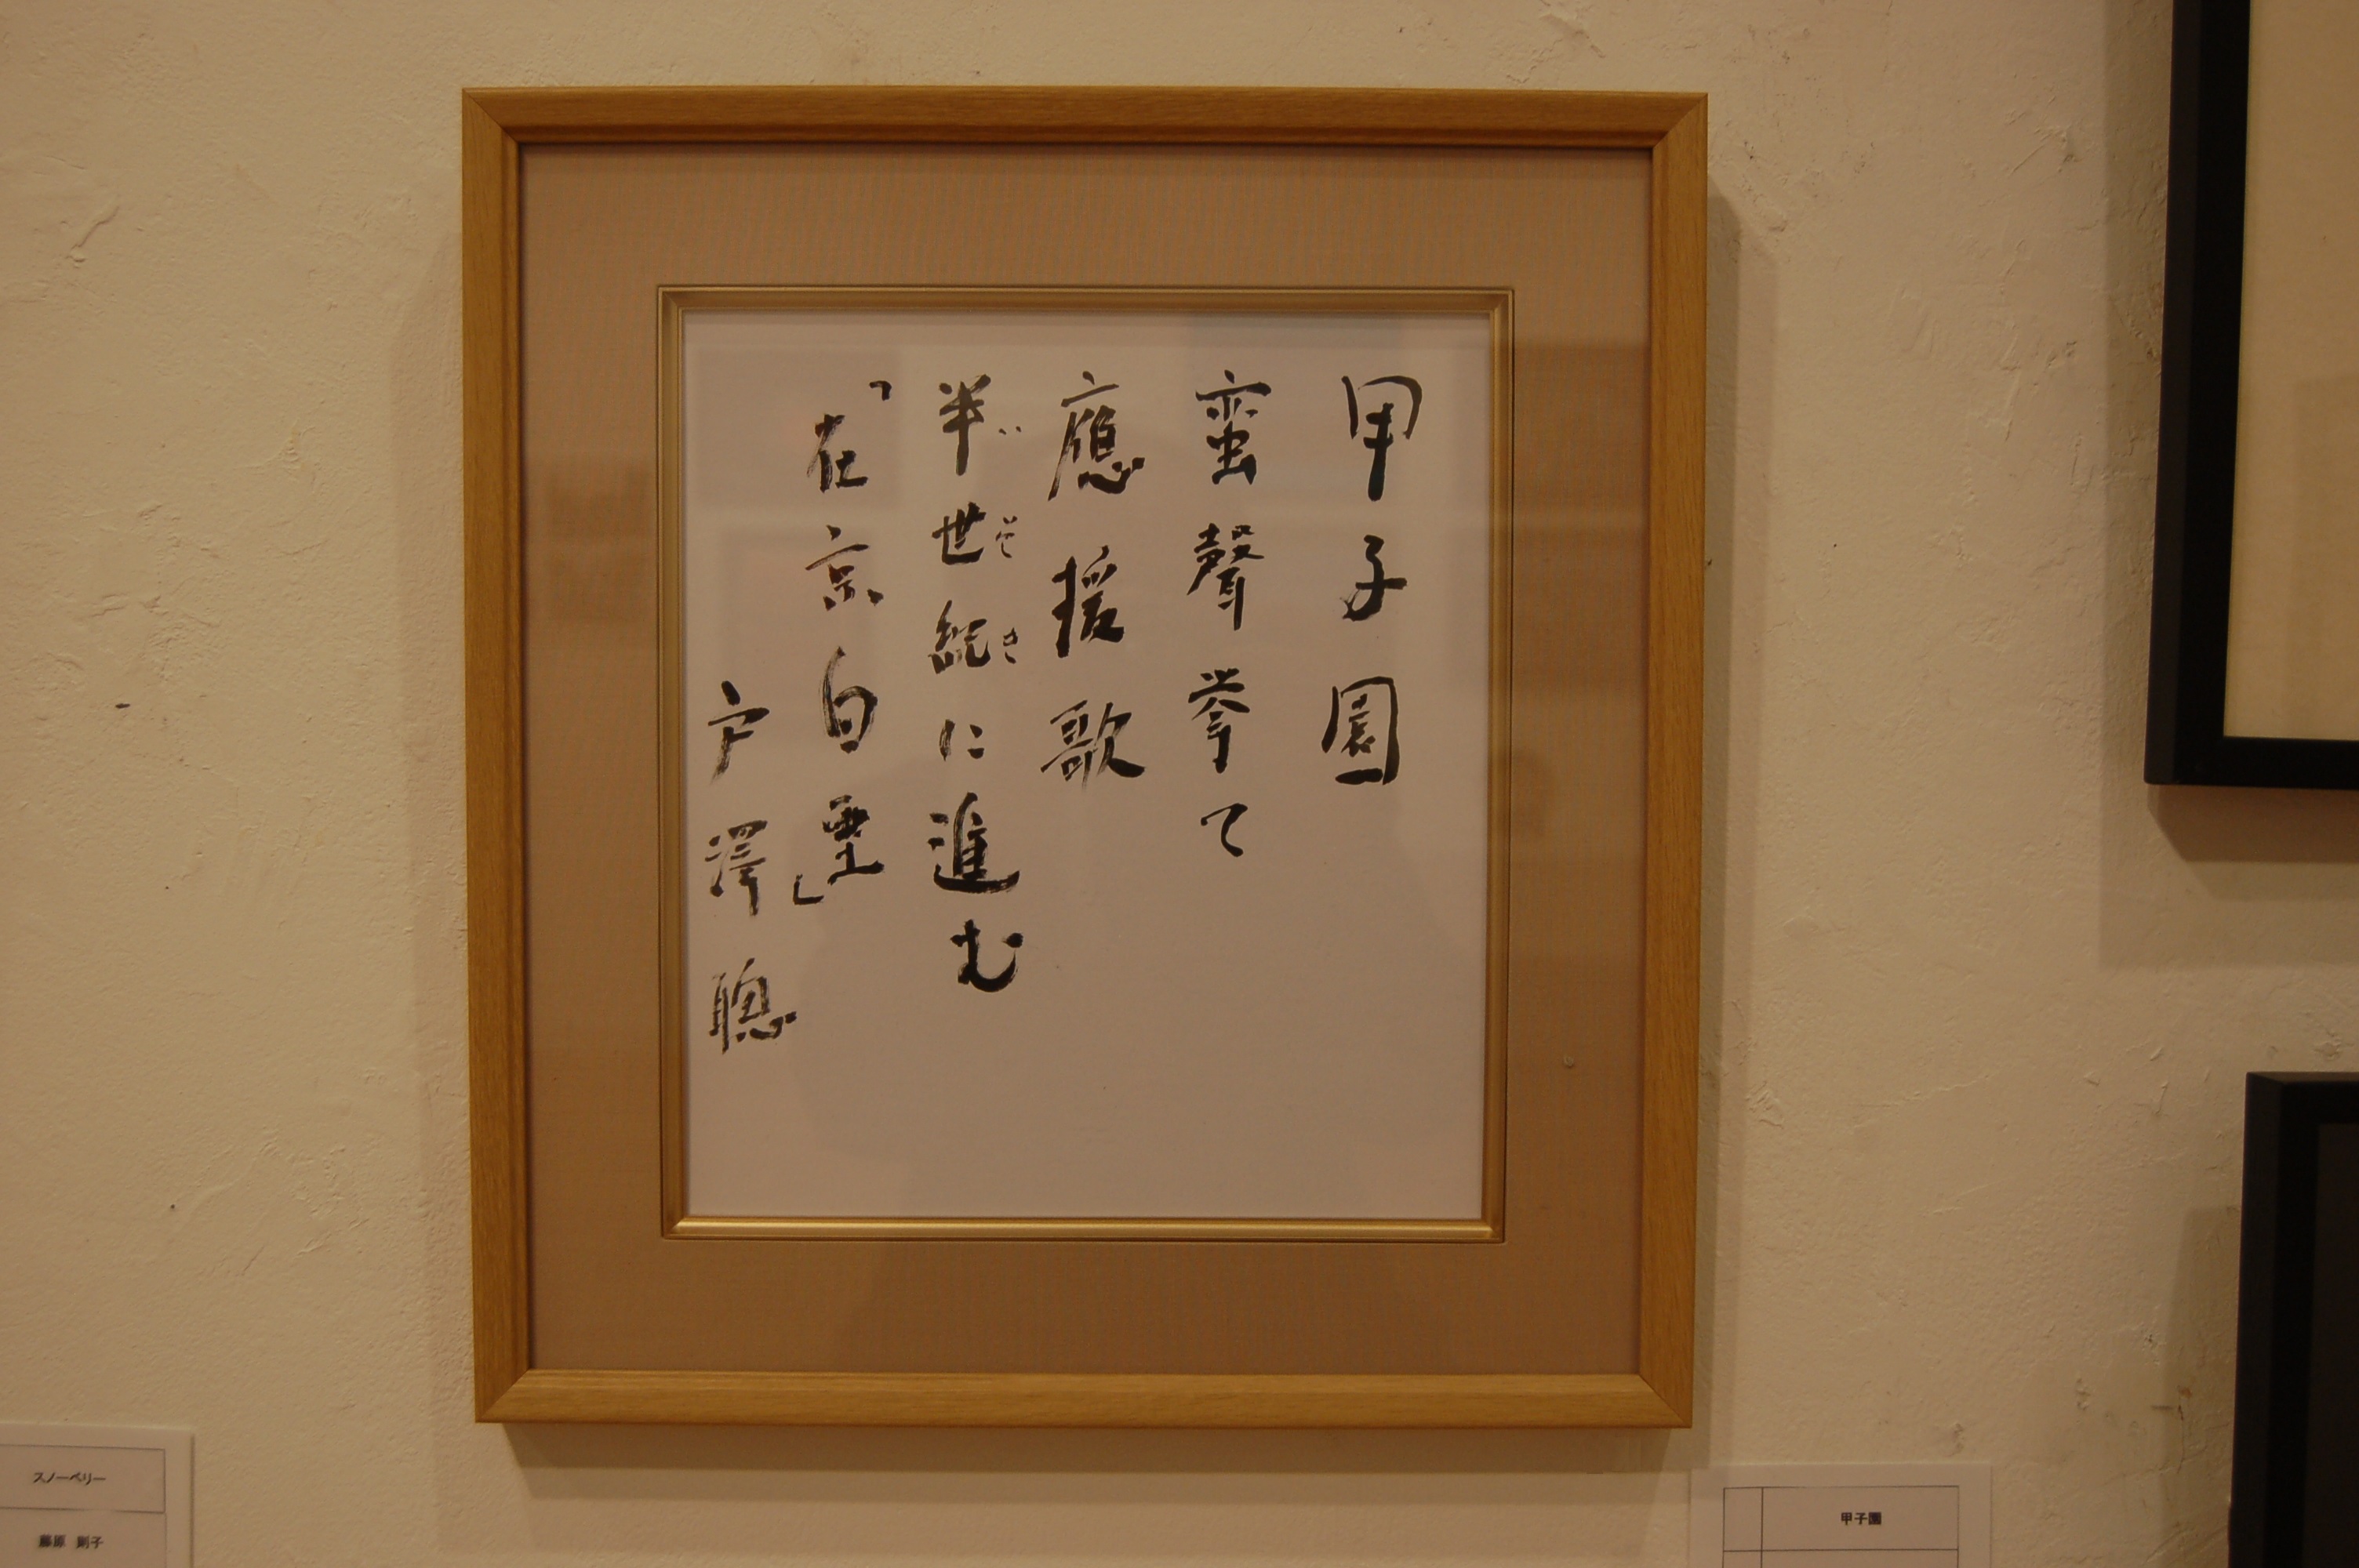 甲子園
蛮聲挙て
應援歌
半世紀に進む
そ
き
「在京白堊」
戸澤聰
スノーベリー
藤原 則子
甲子園